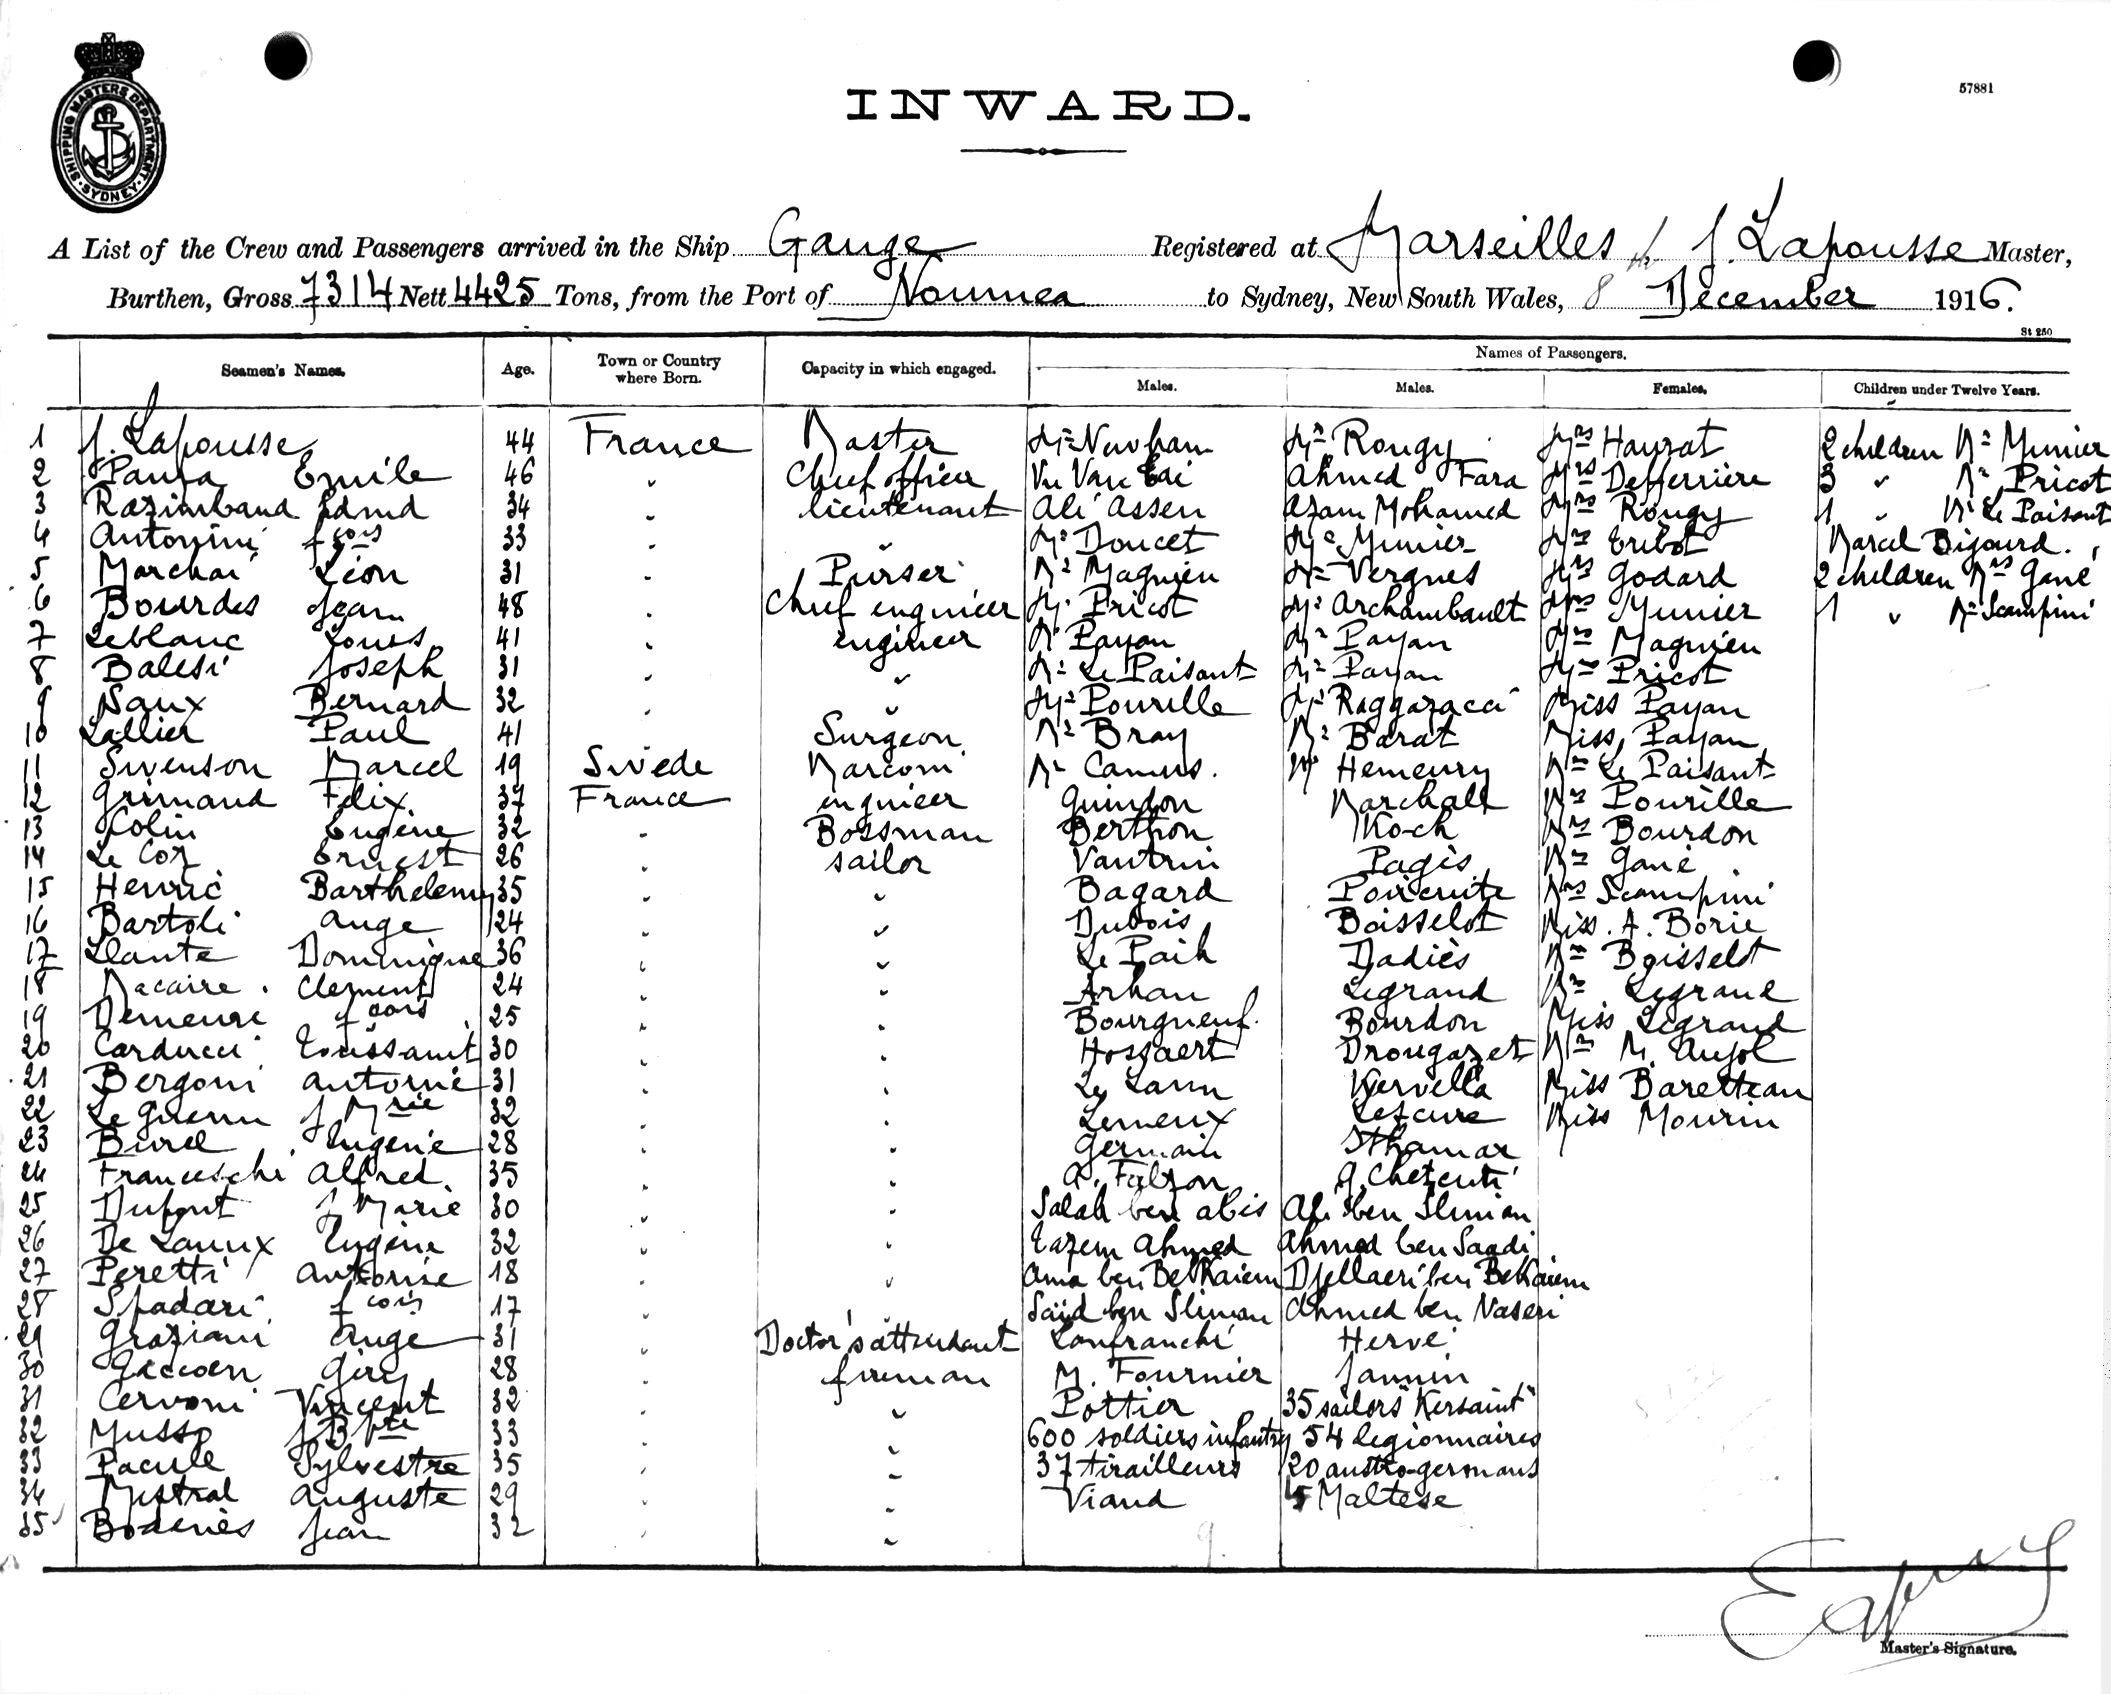 SHIPPING MASTERS DEPARTMENT · SYDNEY ·
57881
INWARD.
A List of the Crew and Passengers arrived in the Ship Gange Registered at Marseilles J. Lapousse Master,
Burthen, Gross 7314 Nett 4425 Tons, from the Port of Noumea to Sydney, New South Wales, 8 December 1916.
St 250
Seamen's Names. Age. Town or Country where Born. Capacity in which engaged. Names of Passengers.
Males. Males. Females. Children under Twelve Years.
1 J. Lapousse 44 France Master Mr Rougy Mrs Haurat 2 children Mr Munier
2 Emile 46 " Chief officer Vu Van Ahmed Fara Mrs Defferrière 3 " Mr Pricot
3 Razimbaud Edmd 34 " lieutenant Ali Assen Azam Mohamed Mrs Rougy 1 " Mr Le Paisant
4 Antonini fcois 33 " " Mr Doucet Mr Munier Mrs Tribot Marcel Bigourd.
5 Marchai Léon 31 " Purser Mr Magnien Mr Vergnes Mrs Godard 2 children Mrs Gané
6 Bourdes Jean 48 " Chief engineer Mr Pricot Mr Archambault Mrs Munier 1 " Mr Scampini
7 Leblanc Louis 41 " engineer Mr Payan Mr Payan Mrs Magnien
8 Balesi Joseph 31 " " Mr Le Paisant Mr Payan Mrs Pricot
9 Naux Bernard 32 " " Mr Pourille Mr Raggazacci Miss Payan
10 Lallier Paul 41 " Surgeon Mr Bray Mr Barat Miss Payan
11 Swenson Marcel 19 Swede Marconi Mr Camus. Mr Hemeury Mrs Le Paisant
12 Grimaud Felix. 37 France engineer Guindon Marchall Mrs Pourille
13 Colin Eugène 32 " Bossman Berthon Koch Mrs Bourdon
14 Le Coz Ernest 26 " sailor Vautrin Pagès Mrs Gané
15 Henric Barthelemy 35 " " Bagard Mrs Scampini
16 Bartoli Ange 24 " " Dubois Boisselot Miss. A. Borie
17 Llante Dominique 36 " " Le Paih Dadiès Mrs Boisselot
18 Macaire. Clement 24 " " Arhan Legrand Mrs Legrand
19 Demeure fcois 25 " " Bourgneuf. Bourdon Miss Legrand
20 Carducci Toussaint 30 " " Hossaert Drougazet Mrs M. Aujol
21 Bergoni Antoine 31 " " Le Lann Kervella Miss Baretteau
22 Le Guenn J Mrie 32 " " Lemeux Lescure Miss Mourin
23 Burel Eugene 28 " " Germain Sthamar
24 Franceschi Alfred 35 " " A. Falzon G. Chetcuti
25 Dupont J Marie 30 " " Salah ben abis Ali ben Sliman
26 De Lanux Eugène 32 " " Tazem Ahmed Ahmed ben Saadi
27 Peretti Antoine 18 " " Ama ben Belkaiem Djellaeri ben Belkaiem
28 Spadari fcois 17 " " Saïd ben Sliman Ahmed ben Naseri
29 Graziani Ange 31 " Doctor's attendant Lanfranchi Hervé
30 Géry 28 " fireman M. Fournier Jannin
31 Cervoni Vincent 32 " " Pottier 35 sailors "Kersaint"
32 Musso J Bpte 33 " " 600 soldiers infantry 54 legionnaires
33 Pacule Sylvestre 35 " " 37 tirailleurs 20 austro-germans
34 Mistral Auguste 29 " " Viaud 5 Maltese
35 Bodenès Jean 32 " "
Master's Signature.